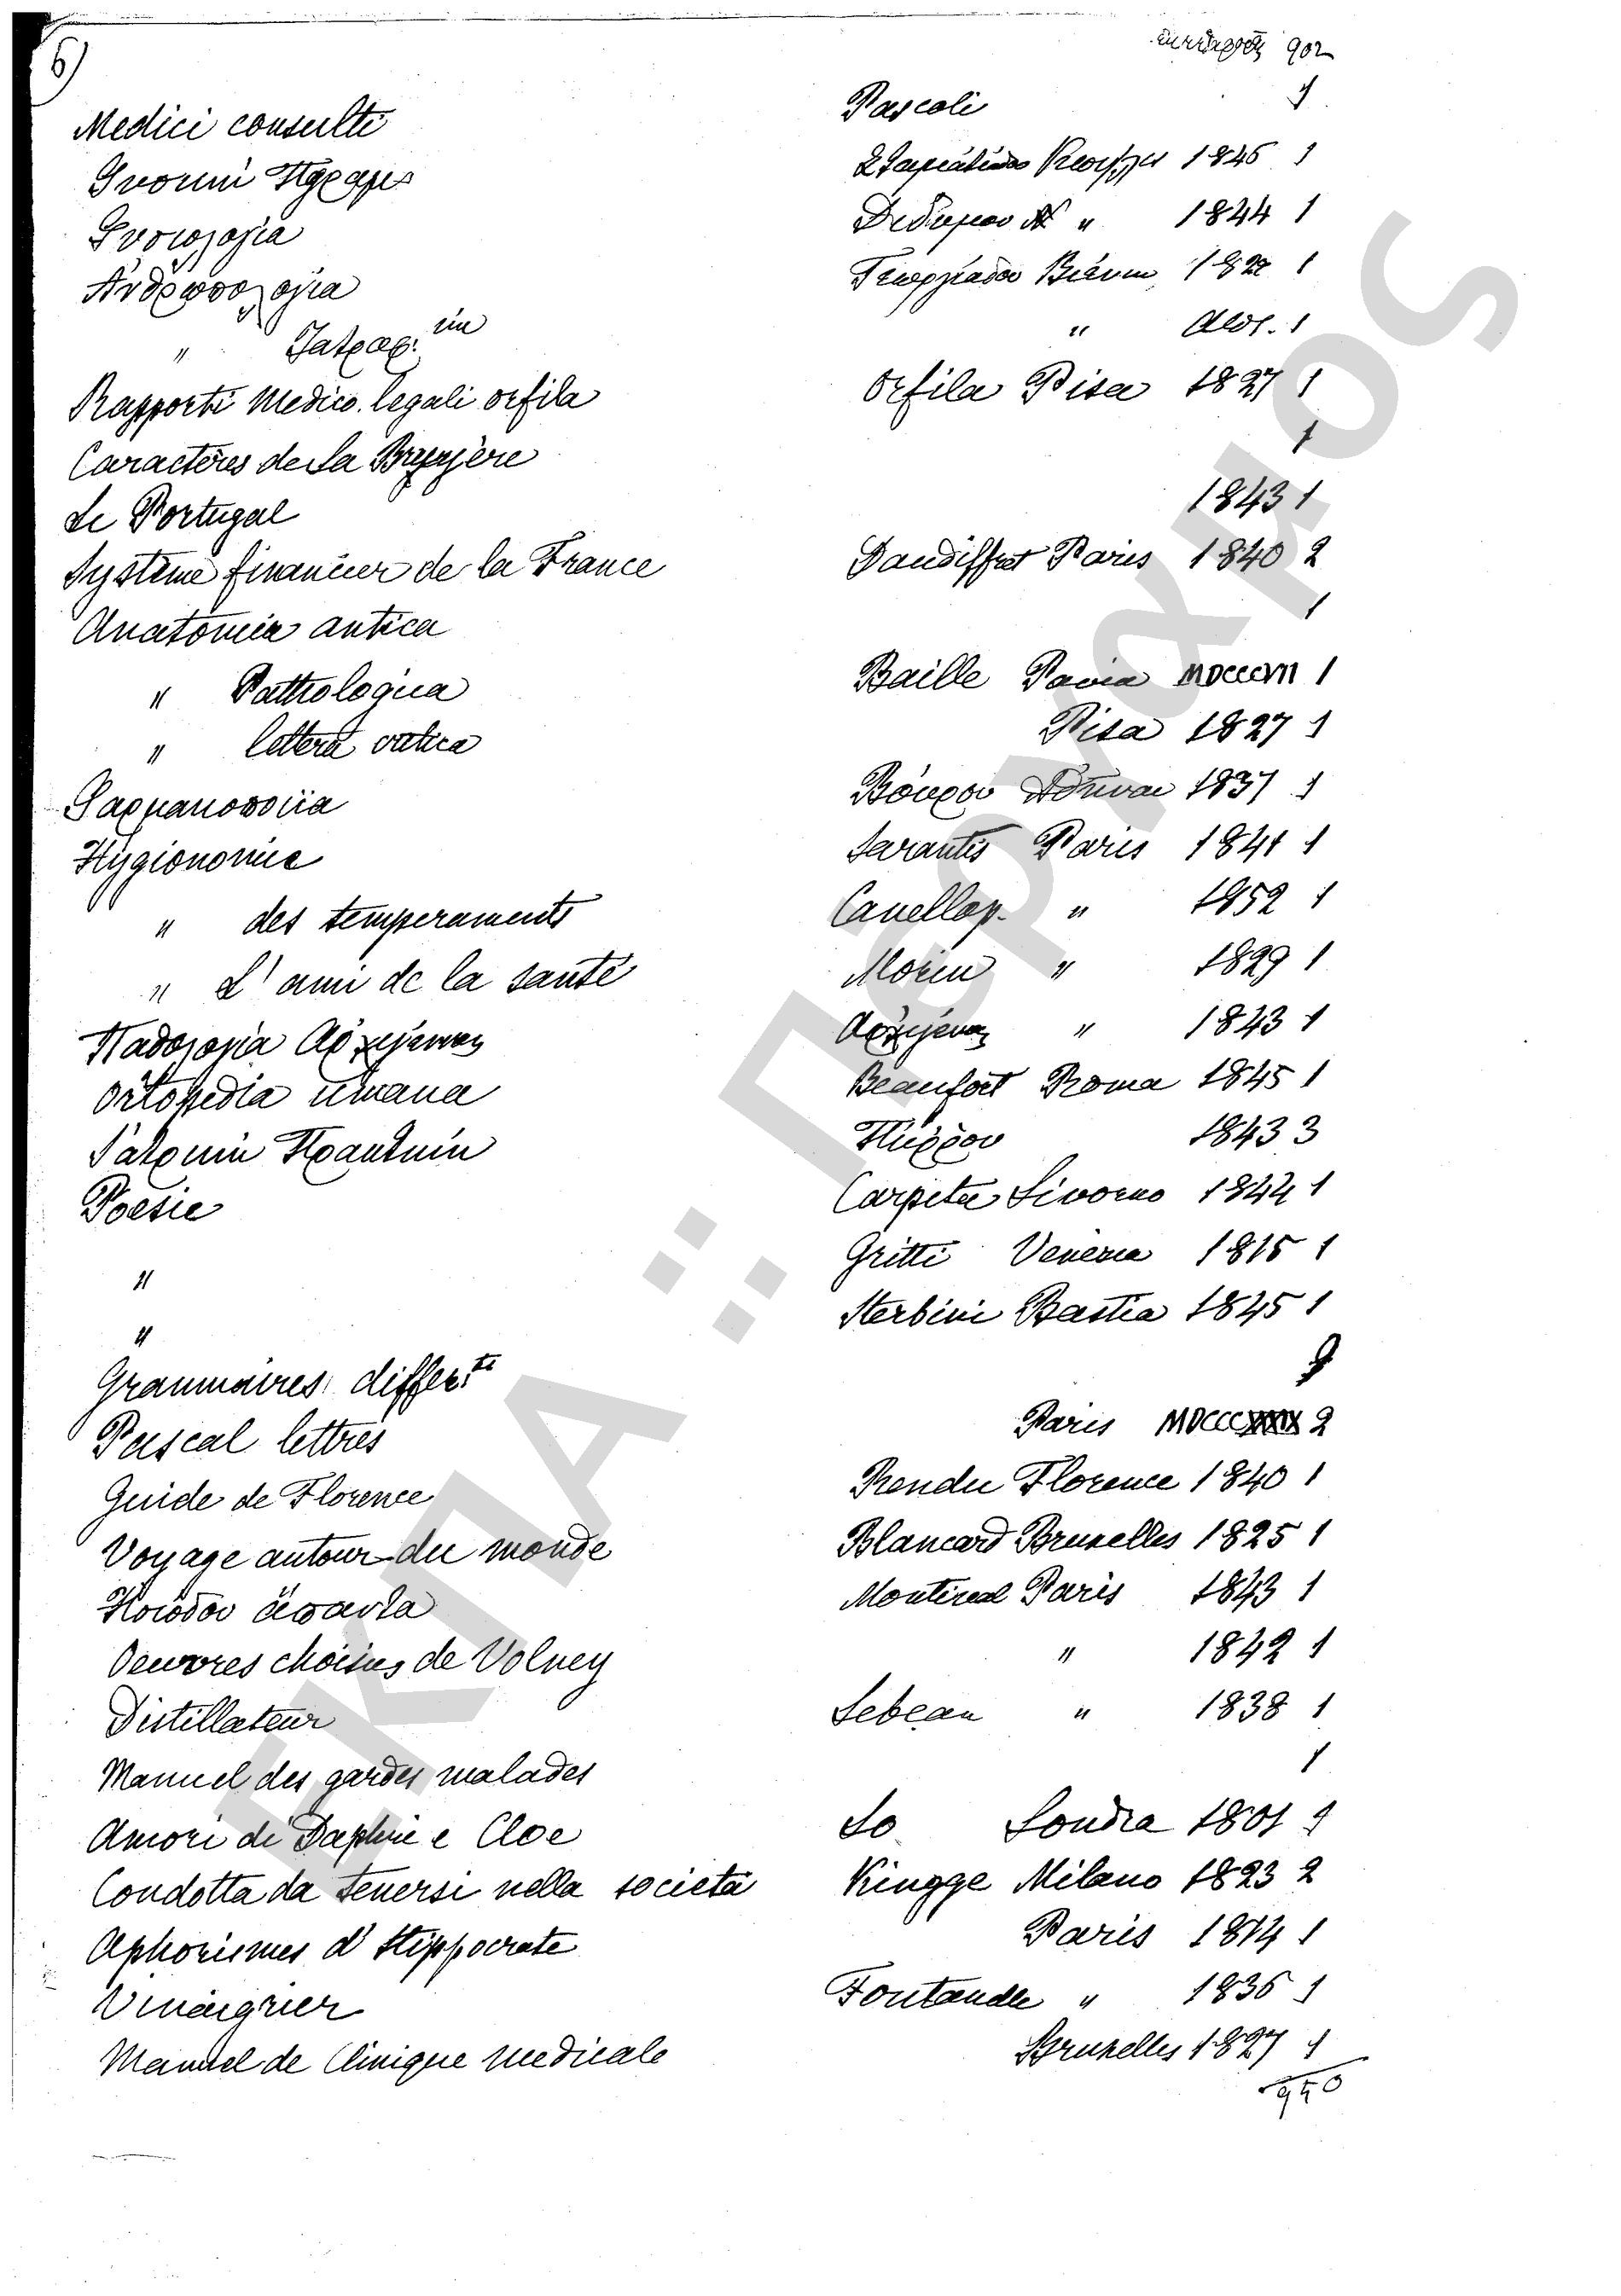 6)
902
Medici consulti Pascoli 1
1845 1
1844 1
Ἀνθρωπολογία Γεωργιάδου Βιέννη 1
" Ἰατροφ. 1
Rapporti Medico. legali orfila Orfila Pisa 1827 1
Caractères de La Bruyère 1
Le Portugal 1843 1
Système financier de la France Daudiffret Paris 1840 2
Anatomia antica 1
" Pathologica Baille Pavia 1
" lettera critica Pisa 1827 1
Φαρμακοποιία Βούρου Ἀθῆναι 1837 1
Hygionomie Sarantis Paris 1841 1
" des temperaments Canellop. " 1852 1
" L'ami de la santé Morin " 1829 1
Παθολογία Ἀρχιγένης Ἀρχιγένης " 1843 1
Ortopedia umana Beaufort Roma 1845 1
Ἰατρική Πρακτική Πύρρου 1843 3
Poesie Carpita Livorno 1842 1
" Gritti Venezia 1815 1
" Sterbini Bastia 1845 1
Grammaires differ.ti 9
Pascal lettres Paris 2
Guide de Florence Rendu Florence 1840 1
Voyage autour du monde Blancard Bruxelles 1825 1
Ἡσιόδου ἅπαντα Montireal Paris 1843 1
Oeuvres choisies de Volney " 1842 1
Distillateur Lebeau " 1838 1
Manuel des gardes malades 1
Amori di Daphne e Cloe Lo Londra 1801 1
Condotta da tenersi nella società Kingge Milano 1823 2
Aphorismes d'Hippocrate Paris 1814 1
Vinaigrier Fontanelle " 1836 1
Manuel de Clinique medicale Bruxelles 1827 1
950
ΕΚΠΑ :: Πέργαμος